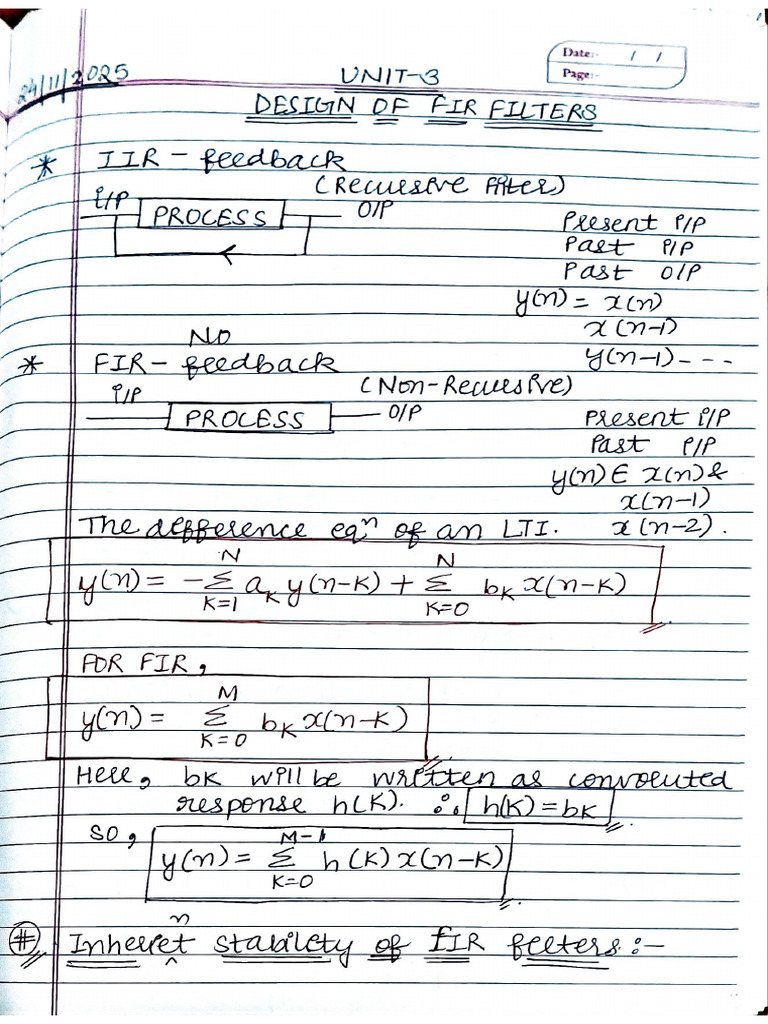 24/11/2025
Date:- / /
Page:-
UNIT-3
DESIGN OF FIR FILTERS
* IIR - feedback
(Recursive filter)
i/P PROCESS O/P
Present i/P
Past i/P
Past O/P
y(n) = x(n)
x(n-1)
y(n-1)---
NO
* FIR - feedback
(Non-Recursive)
i/P PROCESS O/P
Present i/P
Past i/P
y(n) ∈ x(n) &
x(n-1)
x(n-2).
The difference eqⁿ of an LTI.
y(n) = -Σ_{K=1}^{N} a_K y(n-K) + Σ_{K=0}^{N} b_K x(n-K)
FOR FIR,
y(n) = Σ_{K=0}^{M} b_K x(n-K)
Here, bK will be written as convoluted
response h(K). ∴ h(K) = bK
SO,
y(n) = Σ_{K=0}^{M-1} h(K) x(n-K)
# Inherent stability of FIR filters:-